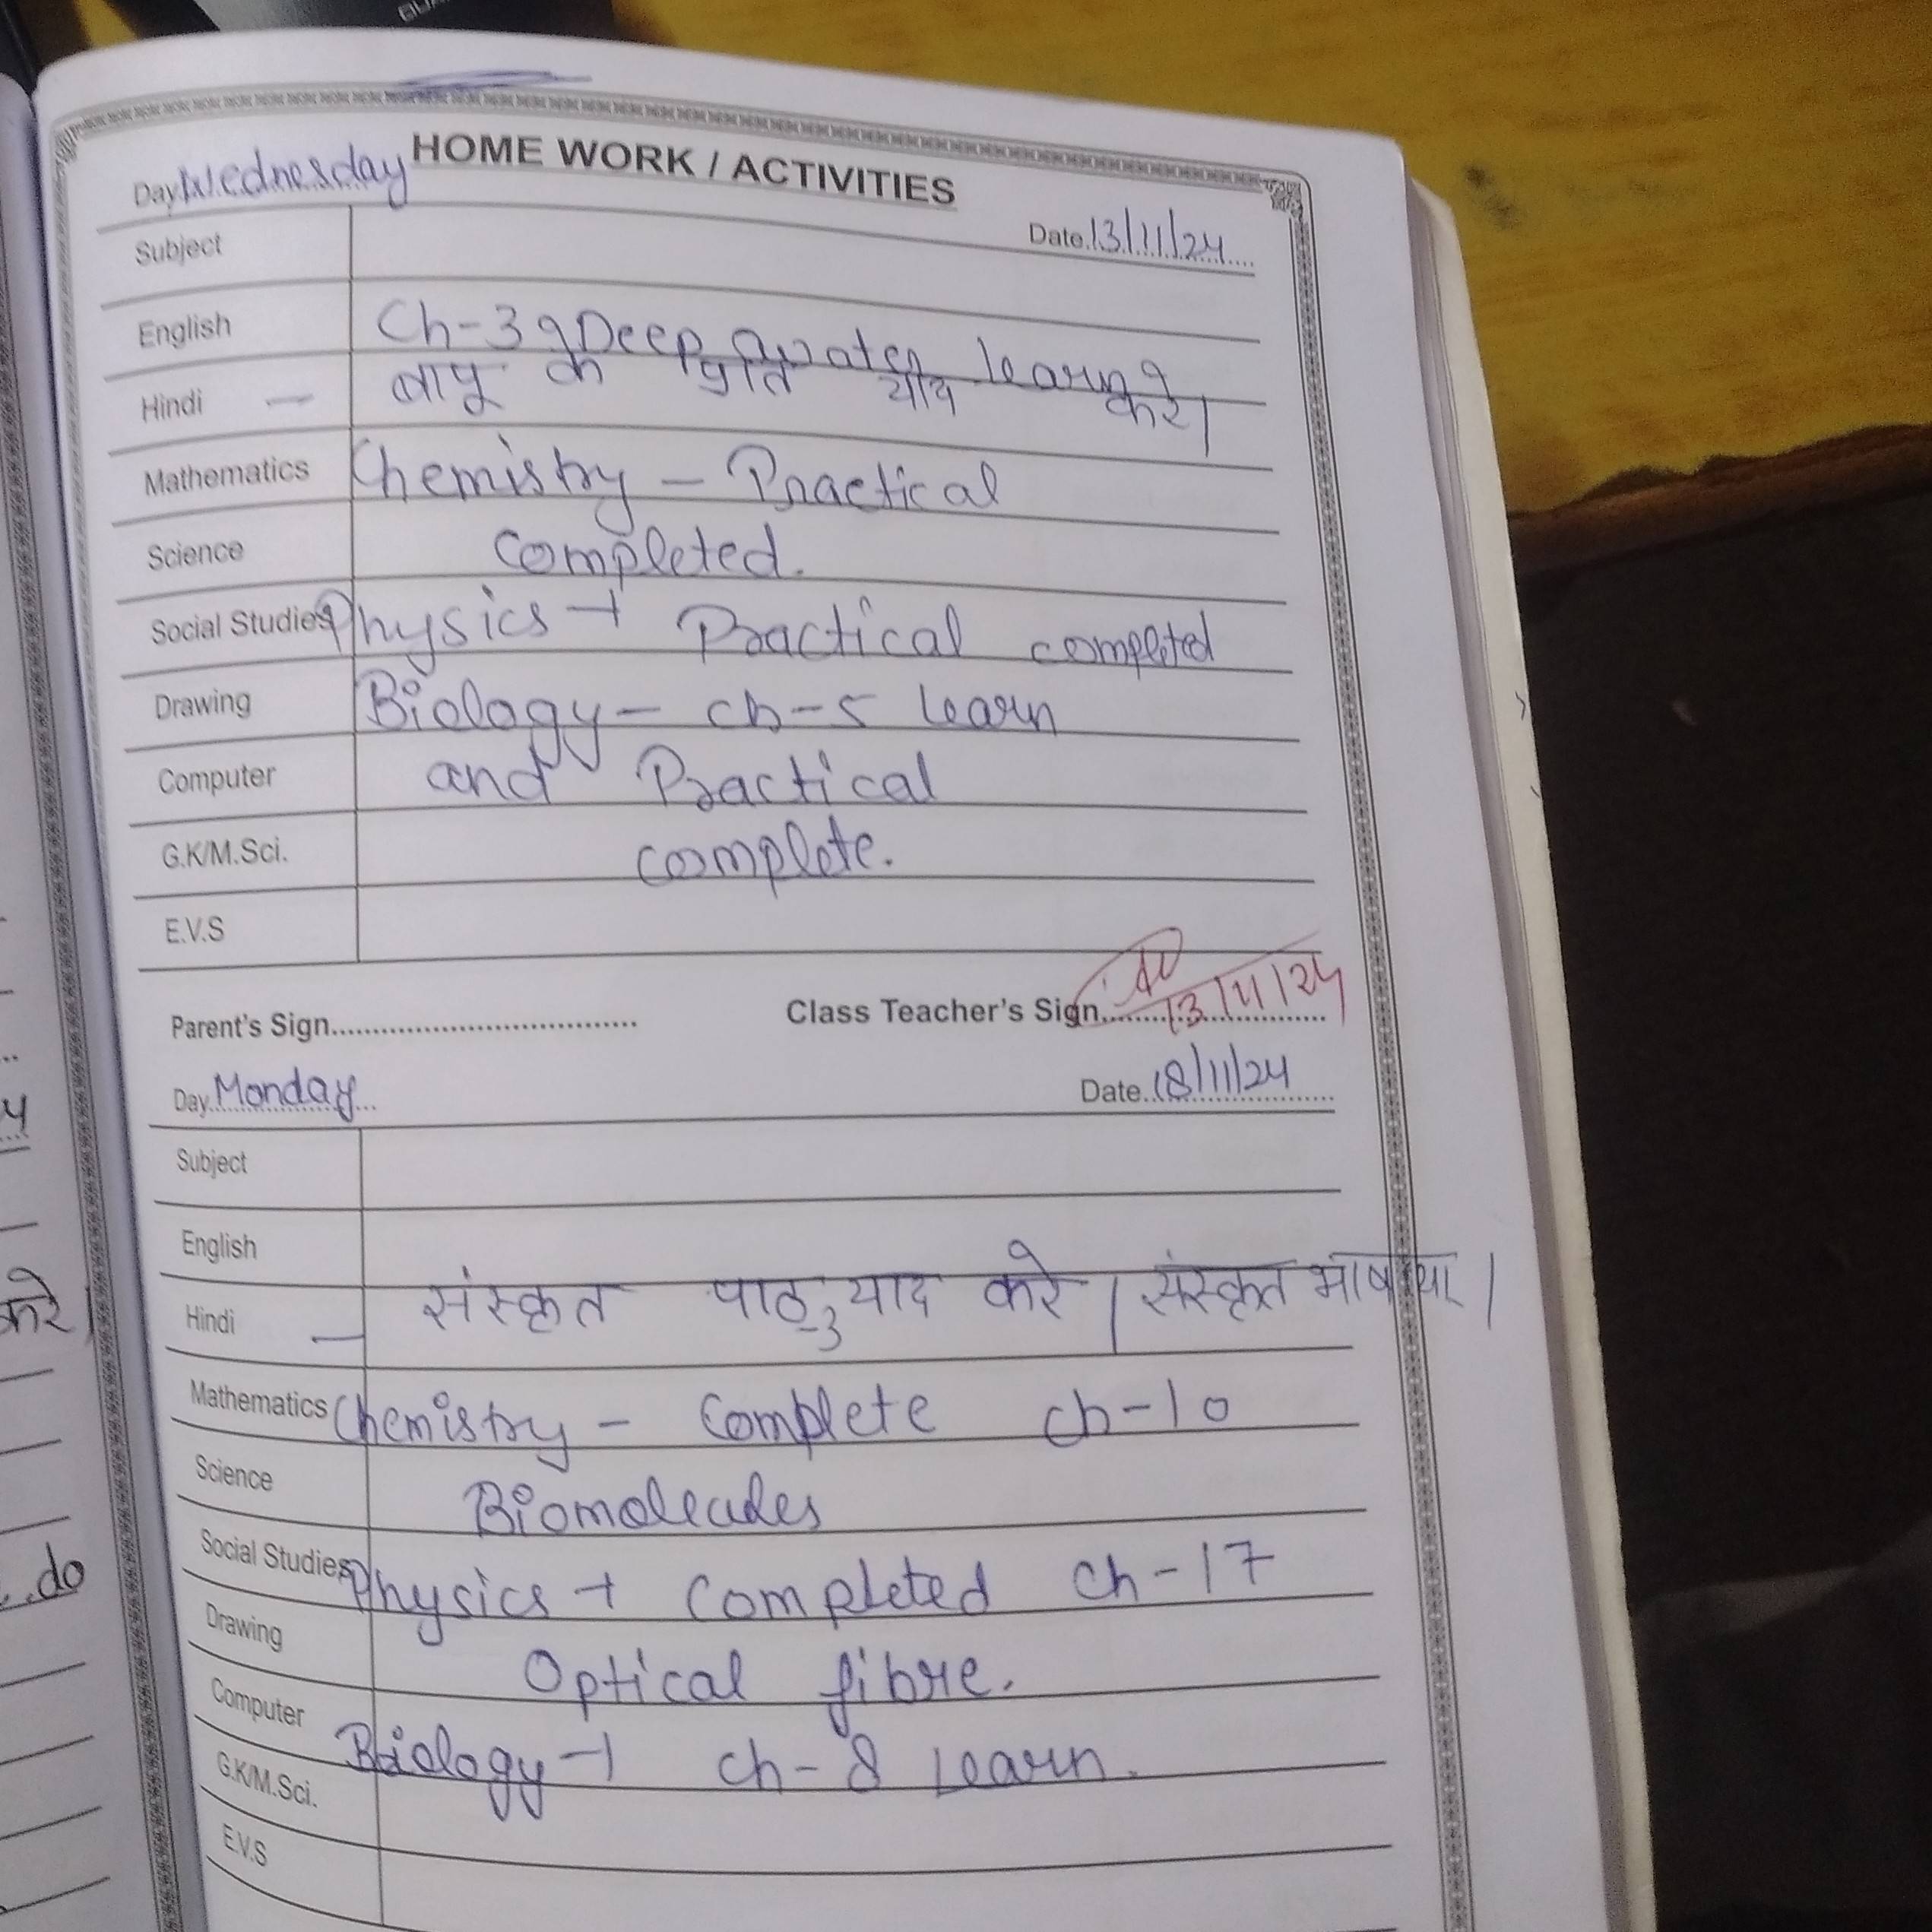 HOME WORK / ACTIVITIES
Day Wednesday
Date 13/11/24
Subject
English Ch-3 Deep water learng
Hindi — बापू के प्रति याद करे।
Mathematics Chemistry - Practical
Science completed.
Social Studies Physics → Practical completed
Drawing Biology - ch-5 learn
Computer and Practical
G.K/M.Sci. complete.
E.V.S
Parent's Sign
Class Teacher's Sign 13/11/24
Day Monday
Date 18/11/24
Subject
English
Hindi — संस्कृत पाठ-3 याद करे। संस्कृत भाषाया।
Mathematics Chemistry - Complete ch-10
Science Biomolecules
Social Studies Physics → Completed ch-17
Drawing Optical fibre.
Computer Biology → ch-8 learn.
G.K/M.Sci.
E.V.S
करे।
do